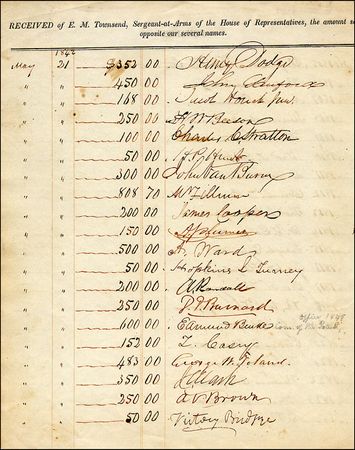 RECEIVED of E. M. Townsend, Sergeant-at-Arms of the House of Representatives, the amount s
opposite our several names.
1842
May 21 $352 00 Henry Dodge
" " 450 00 John
" " 168 00 Jacob Houck Jnr.
" " 250 00 H. W. Beeson
" " 100 00 Charles C. Stratton
" " 50 00
" " 300 00 John Van Buren
" " 808 70 M Fillmore
" " 200 00 James Cooper
" " 150 00
" " 500 00 A. Ward
" " 50 00 Hopkins L Turney
" " 200 00 A Randall
" " 250 00 D. D. Barnard
" " 600 00 Edmund Burke
" " 152 00 Z. Casey
" " 483 00 George W. Toland
" " 350 00 Clark
" " 250 00 A V Brown
" " 50 00 Victory Birdseye